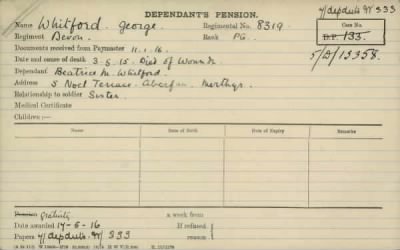 DEPENDANT'S PENSION. y/depdts W 333
Name Whitford George Regimental No. 8319 Case No.
Regiment Devon Rank Pte. D.P. 135
Documents received from Paymaster 11.1.16 5/D/13358.
Date and cause of death 3.5.15 Died of Wounds
Dependant Beatrice M. Whitford.
Address 5 Noel Terrace Aberfan Merthyr.
Relationship to soldier Sister
Medical Certificate
Children:—
Name Date of Birth Date of Expiry Remarks
Pension gratuity a week from
Date awarded 17-6-16 If refused
Papers y/depdts W 333 reason